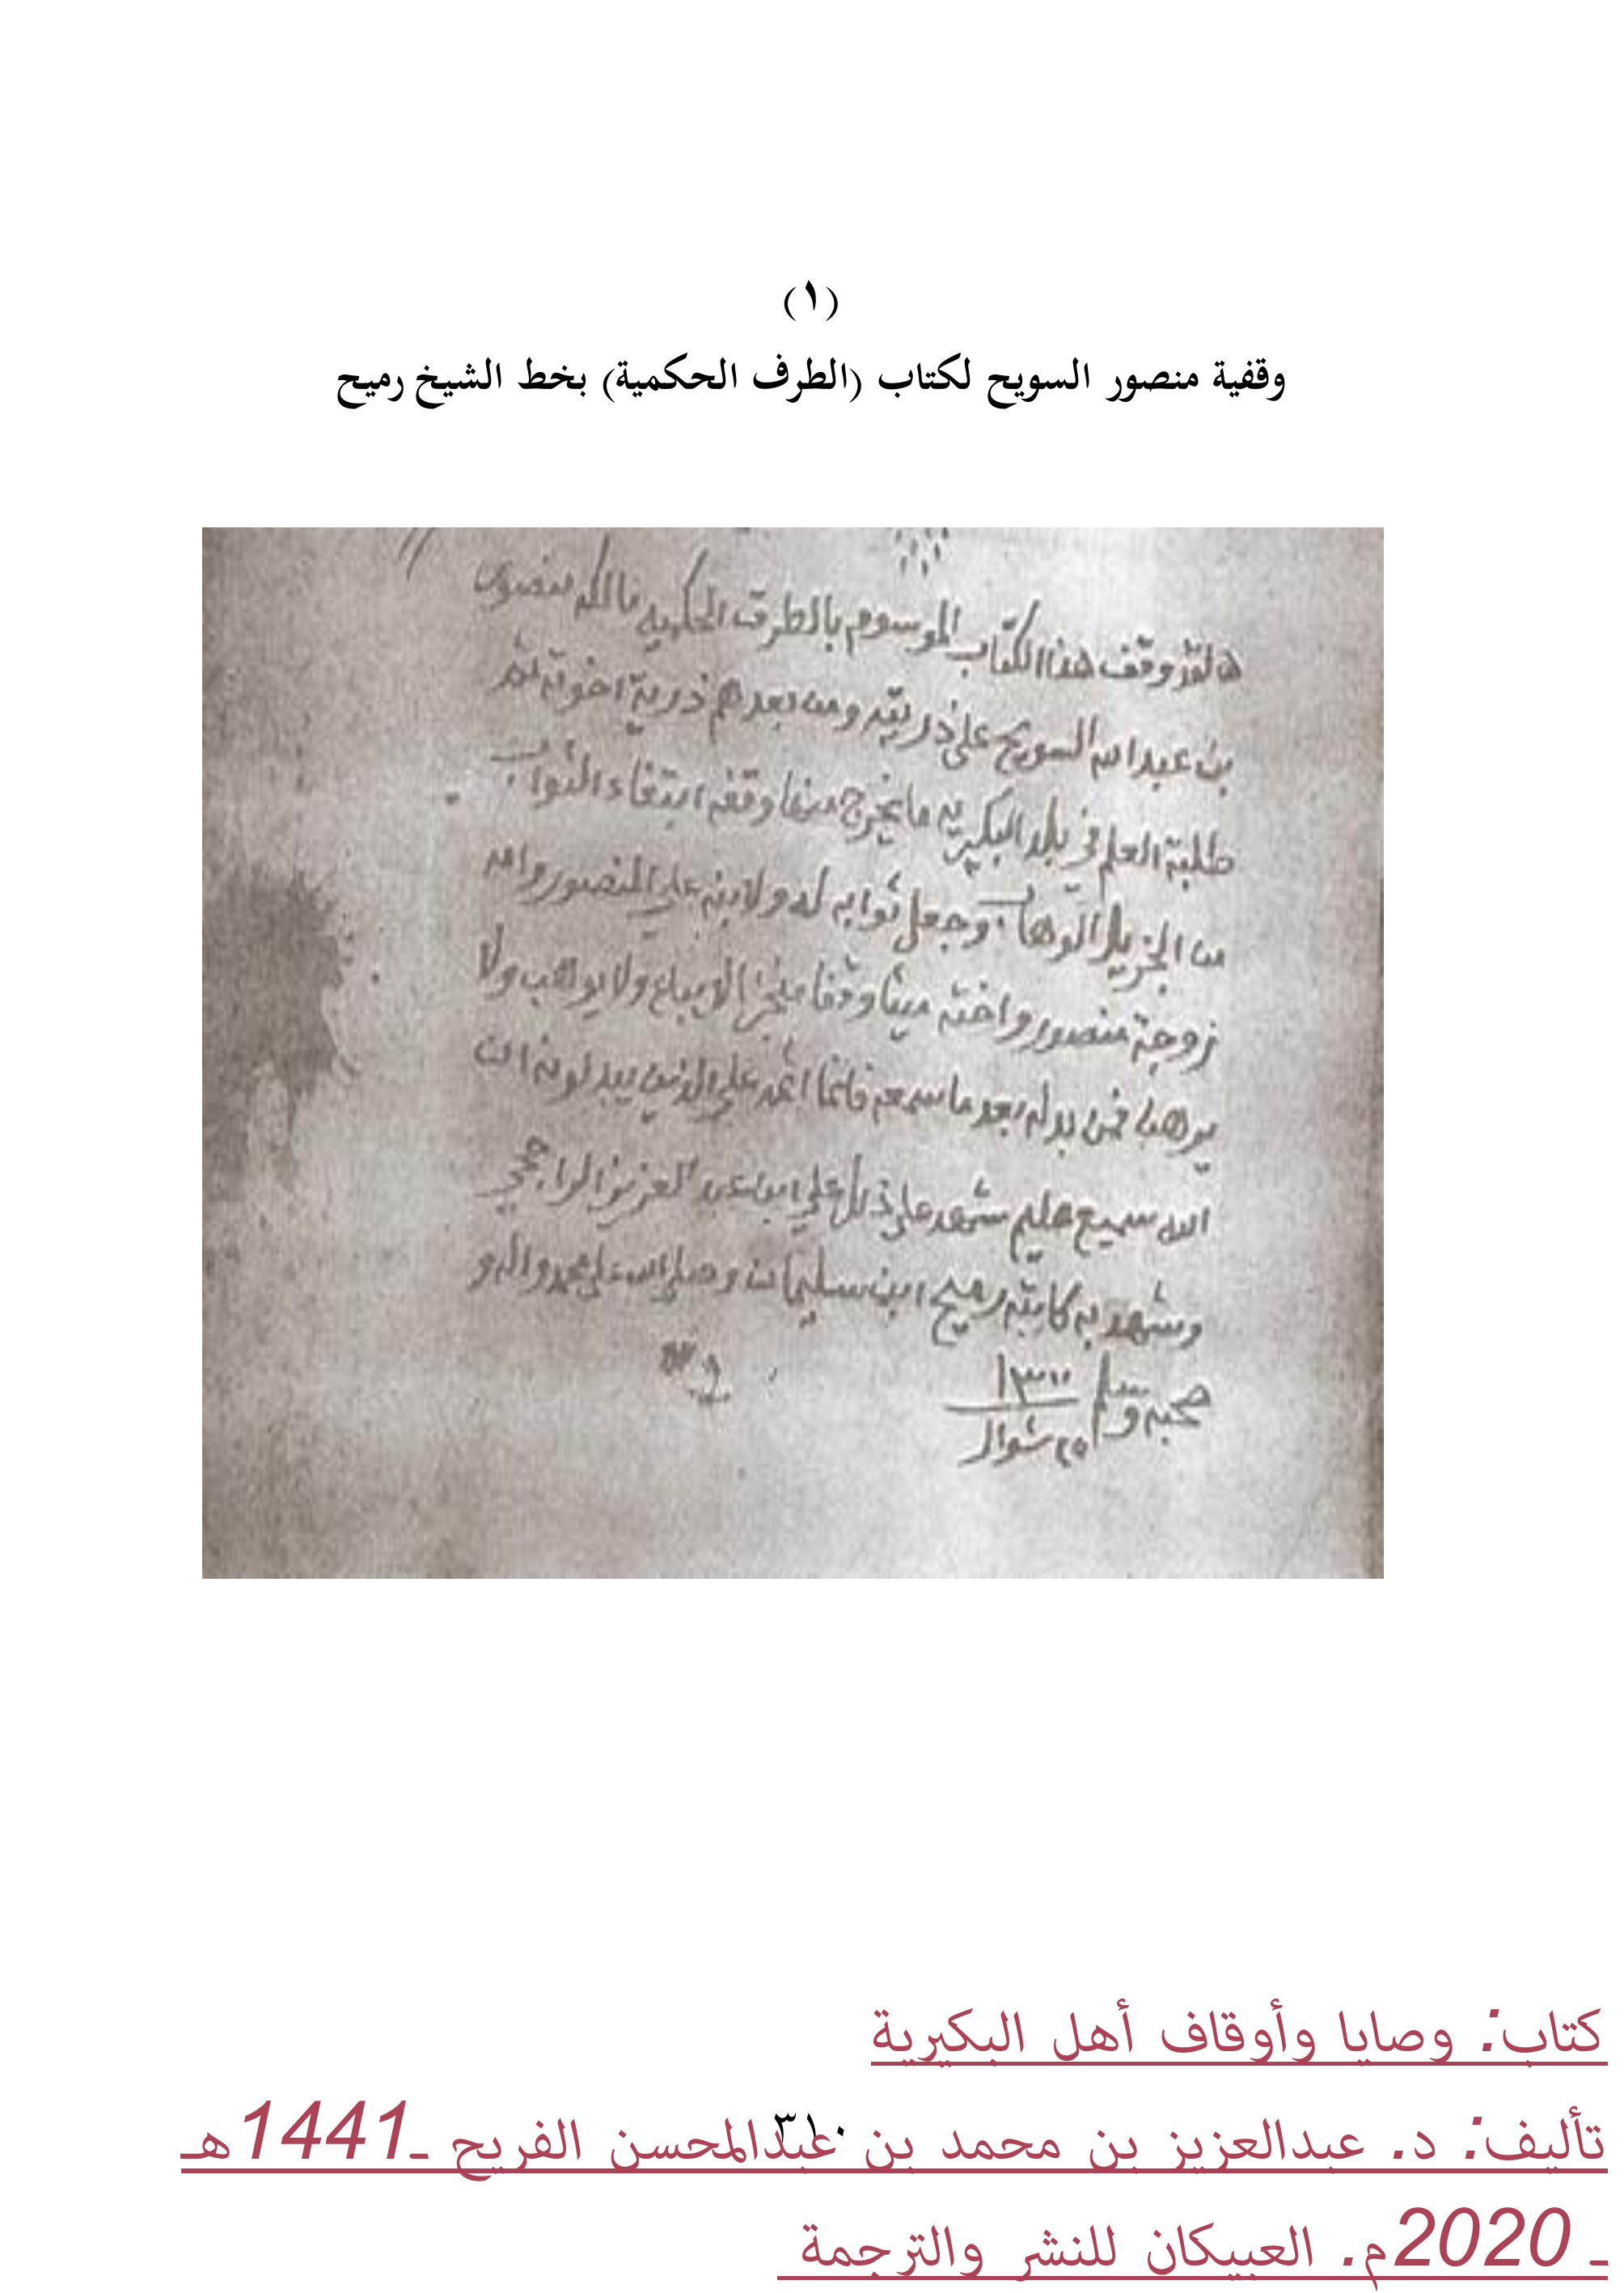 (١)
وقفية منصور السويح لكتاب (الطرف الحكمية) بخط الشيخ رميح
لقد وقف هذا الكتاب الموسوم بالطرق الحكميه مالكه منصور
بن عبدالله السويح على ذريته ومن بعدهم ذرية اخوته ثم
طلبة العلم في بلد البكيريه ما يخرج منها وقفه ابتغاء الثواب
من الجزيل الوهاب وجعل ثوابه له ولابنه علي المنصور وامه
زوجة منصور واخته ميثا وقفا منجزا لا يباع ولا يوهب ولا
يرهن فمن بدله بعد ما سمعه فانما اثمه على الذين يبدلونه ان
الله سميع عليم شهد على ذلك علي ابن عبد العزيز الراجحي
وشهد به كاتبه رميح ابن سليمان وصلى الله على محمد واله و
صحبه وسلم ١٣٠٠
٢٥ شوال
كتاب: وصايا وأوقاف أهل البكيرية
تأليف: د. عبدالعزيز بن محمد بن عبدالمحسن الفريح ـ1441هـ
ـ 2020م. العبيكان للنشر والترجمة
٣١٠